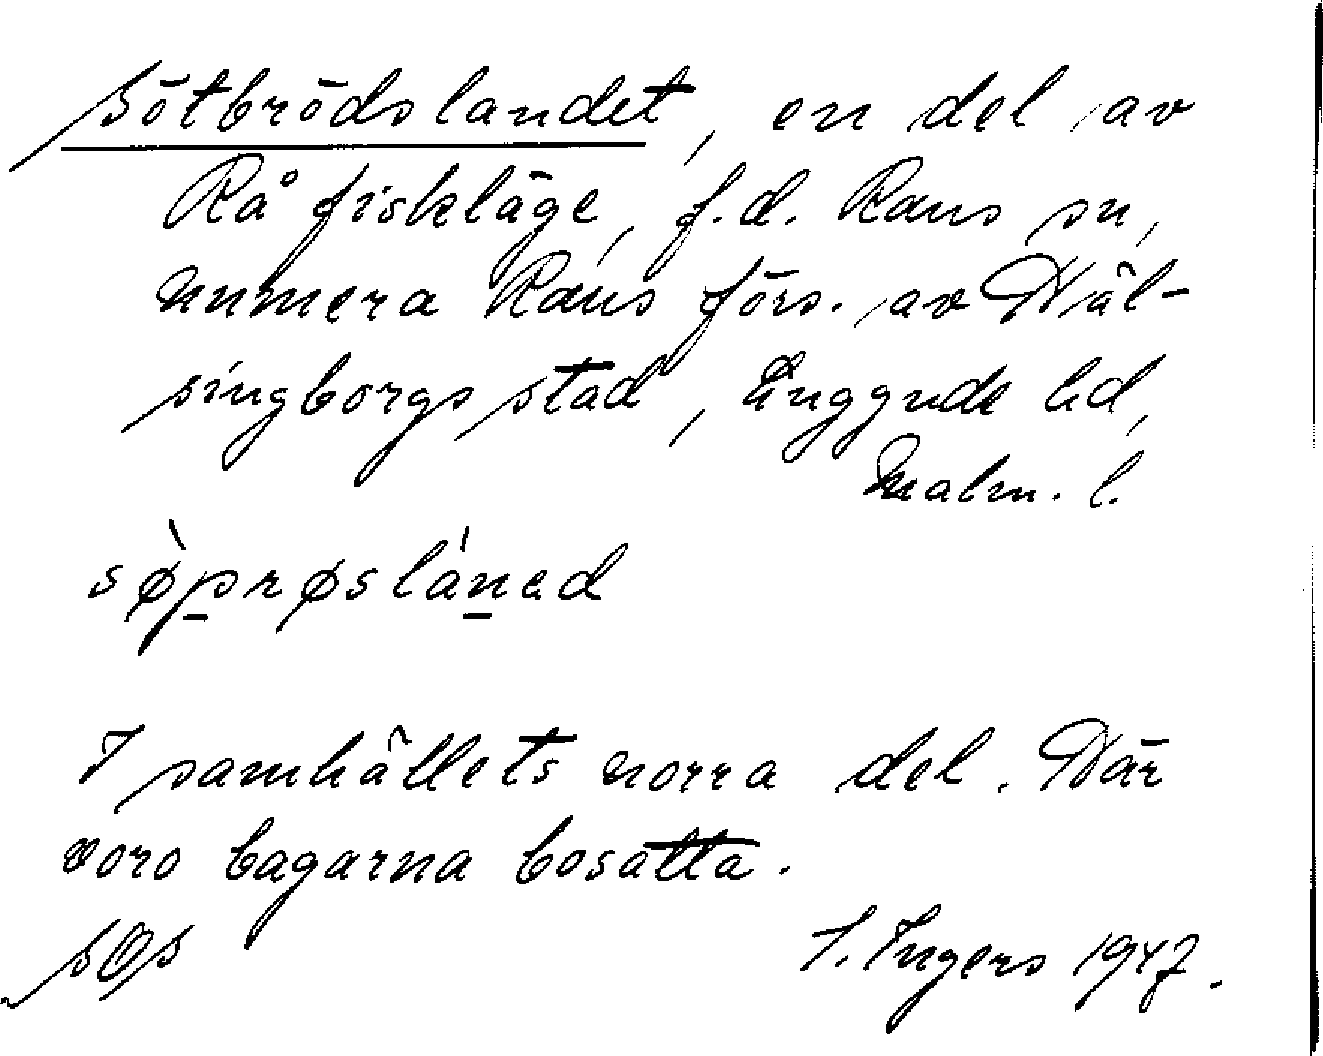 Sötbrödslandet, en del av
Rå fiskläge, f.d. Raus sn,
numera Raus förs. av Häl-
singborgs stad, Luggude hd,
Malm. l.
sø̀prøslánad
I samhällets norra del. Där
voro bagarna bosatta.
SOS I. Ingers 1947.